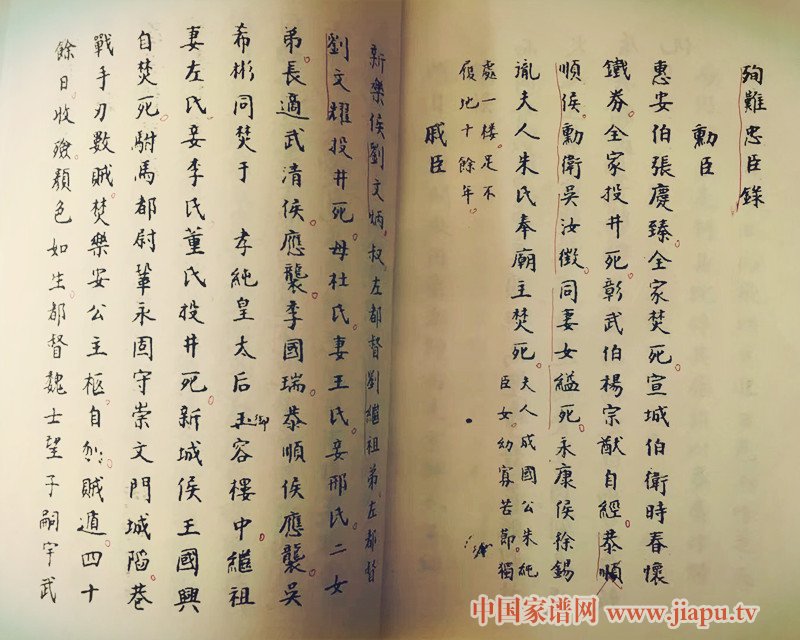 殉難忠臣錄
勳臣
惠安伯張慶臻全家焚死宣城伯衛時春懷
鐵券全家投井死彰武伯楊宗猷自經恭順
順侯勳衛吳汝徵同妻女縊死永康侯徐錫
胤夫人朱氏奉廟主焚死夫人成國公朱純
臣女幼寡苦節獨
處一樓足不
履地十餘年
戚臣
新樂侯劉文炳叔左都督劉繼祖弟左都督
劉文耀投井死母杜氏妻王氏妾邢氏二女
弟長適武清侯應襲李國瑞恭順侯應襲吳
希彬同焚于 孝純皇太后御容樓中繼祖
妻左氏妾李氏董氏投井死新城侯王國興
自焚死駙馬都尉鞏永固守崇文門城陷巷
戰手刃數賊焚樂安公主柩自刎賊遁四十
餘日收殮顏色如生都督魏士望子嗣宇武
中国家谱网 www.jiapu.tv